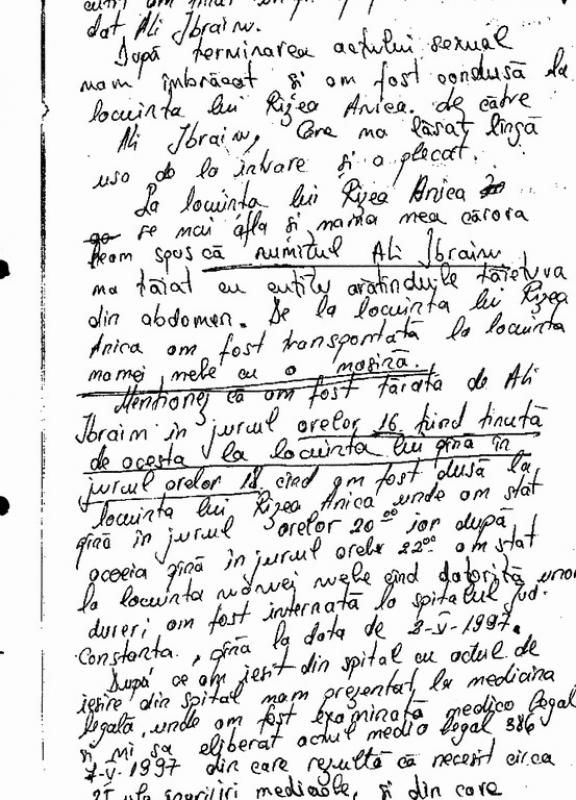 dat Ali Ibraim.
După terminarea actului sexual
mam îmbrăcat și am fost condusă la
locuința lui Rizea Anica. de către
Ali Ibraim, care ma lăsat lîngă
ușa de la intrare și a plecat.
La locuința lui Rizea Anica
se mai afla și mama mea cărora
leam spus că numitul Ali Ibraim
ma tăiat cu cuțitu arătîndule tăietura
din abdomen. De la locuința lui Rizea
Anica am fost transportată la locuința
mamei mele cu o mașină.
Menționez că am fost tăiată de Ali
Ibraim în jurul orelor 16 fiind ținută
de acesta la locuința lui pînă în
jurul orelor 18 cînd am fost dusă la
locuința lui Rizea Anica unde am stat
pînă în jurul orelor 20⁰⁰ iar după
aceeia pînă în jurul orele 22⁰⁰ am stat
la locuința mamei mele cînd datorită unor
dureri am fost internată la spitalul Jud.
Constanta, pînă la data de 2-V-1997.
După ce am ieșit din spital cu actul de
ieșire din spital mam prezentat la medicina
legală, unde am fost examinată medico legal
și mi sa eliberat actul medico legal 386
7-V-1997 din care rezultă că necesit circa
îngrijiri medicale, și din care